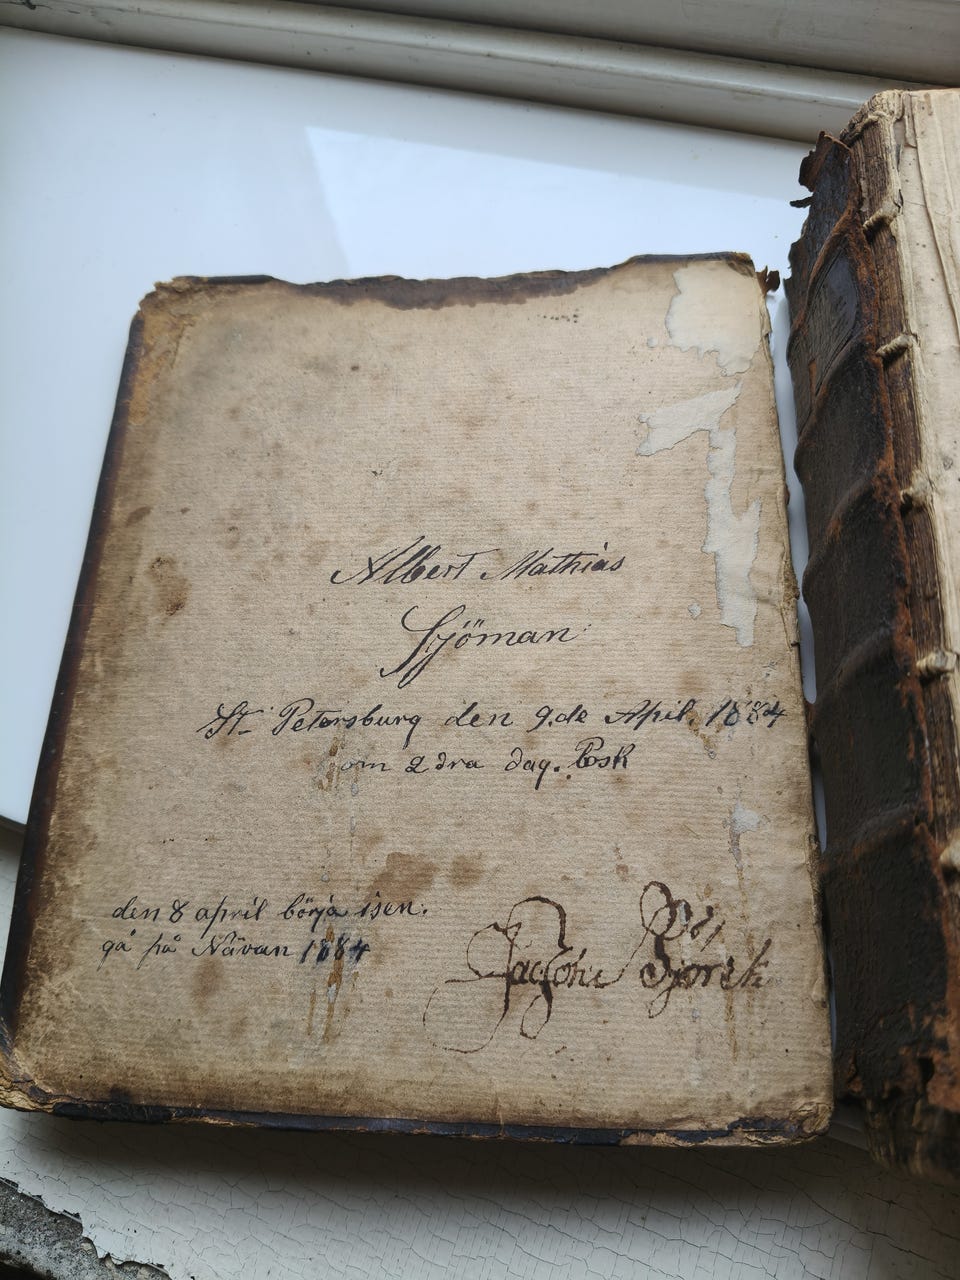 Albert Mathias
Sjöman
St. Petersburg den 9.de April. 1884
om 2 dra dag. Posk
den 8 april börja isen.
gå på Nävan 1884
Björk